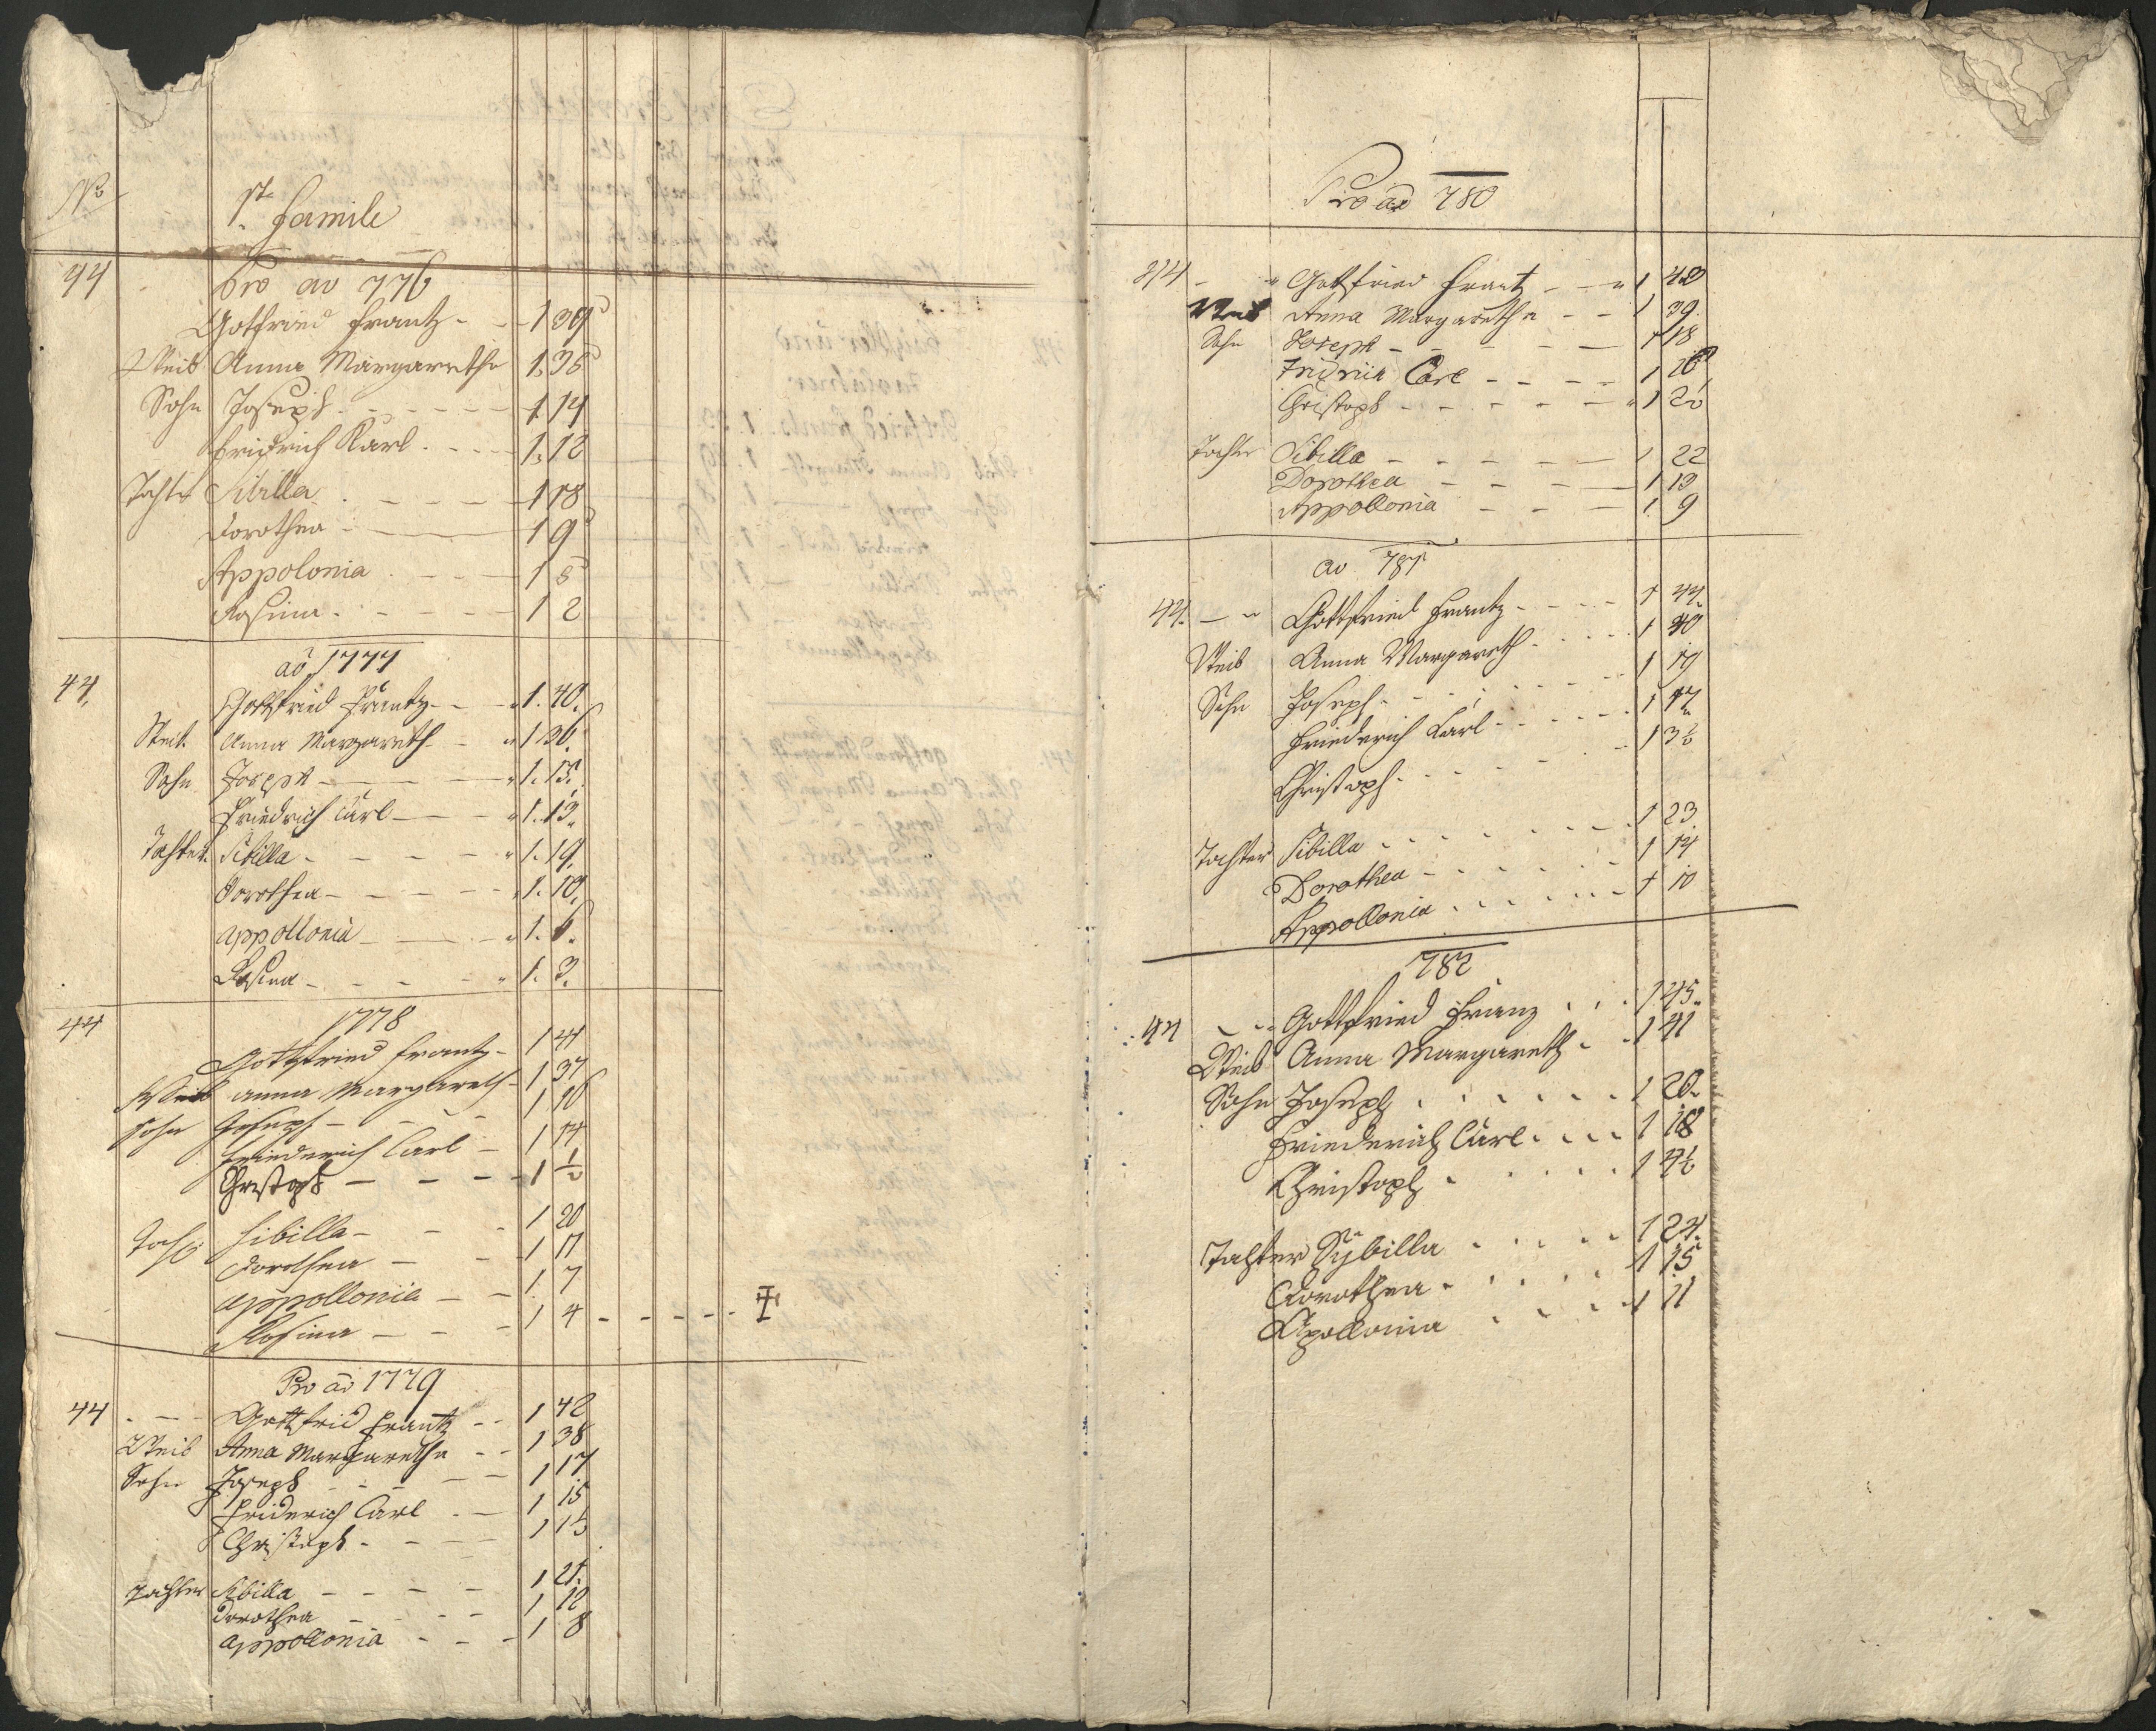 No
1te Famile
44 Pro ao 776
Gotfried Frantz - - 1 39
Weib Anna Margaretha 1. 35
Sohn Joseph - - - - 1. 14
Fridrich Karl - - - 1. 12
Tochter Sibilla - - - - 1 18
Dorothea - - 1 9
Appolonia - - - 1 5
Rosina - - - - 1 2
ao 1777
44. Gottfried Frantz - - 1. 40.
Weib. Anna Margareth - 1 36.
Sohn Joseph - - - 1. 15.
Friedrich Carl - - - 1. 13.
Tochter. Sibilla - - - - 1. 19.
Dorothea - - - - 1. 10.
Appollonia - - - 1. 6.
Rosina - - - - 1. 3.
44 1778
Gottfried Frantz - 1 41
Weib anna Margareth - 1 37
Sohn Joseph - - - 1 16
Friederich Carl - 1 14
Christoph - - - - 1 ½
Tocht. Sibilla - - - 1 20
Dorothea - - 1 11
appollonia - - 1 7
Rosina - - - 1 4 - - - - -
Pro ao 1779
44 - - - Gottfrid Frantz - - 1 42
Weib Anna Margaretha - - 1 38
Sohn Joseph - - - - 1 17
Friderich Carl - - 1 15
Christoph - - - - 1 1½
Tochter Sibilla - - - - 1 21.
Dorothea - - - - 1 12
appollonia - - - 1 8
Pro ao 780
44 - - Gottfried Frantz - - 1 43
Weib Anna Margaretha - - 1 39.
Sohn Joseph - - - - 1 18
Fridrich Carl - - - - 1 16
Christoph - - - - - 1 2½
Tochter Sibilla - - - - - 1 22
Dorothea - - - - 1 13
Appollonia - - - 1 9
ao 781
44. - - Gottfried Frantz - - - - 1 44.
Weib Anna Margareth - - - - 1 40
Sohn Joseph - - - - - 1 19
Friederich Carl - - - - 1 17
Christoph - - - - - 1 3½
Tochter Sibilla - - - - - - 1 23.
Dorothea - - - - - 1 14
Appollonia - - - - - 1 10
782
44 - - Gottfried Franz . . . 1 45.
Weib Anna Margareth - - 1 41
Sohn Joseph . . . . . . 1 20.
Friederich Carl . . . . 1 18
Christoph . . . . . 1 4½
Tochter Sÿbilla . . . . . 1 24.
Dorothea . . . . . 1 15
Apollonia . . . . 1 11